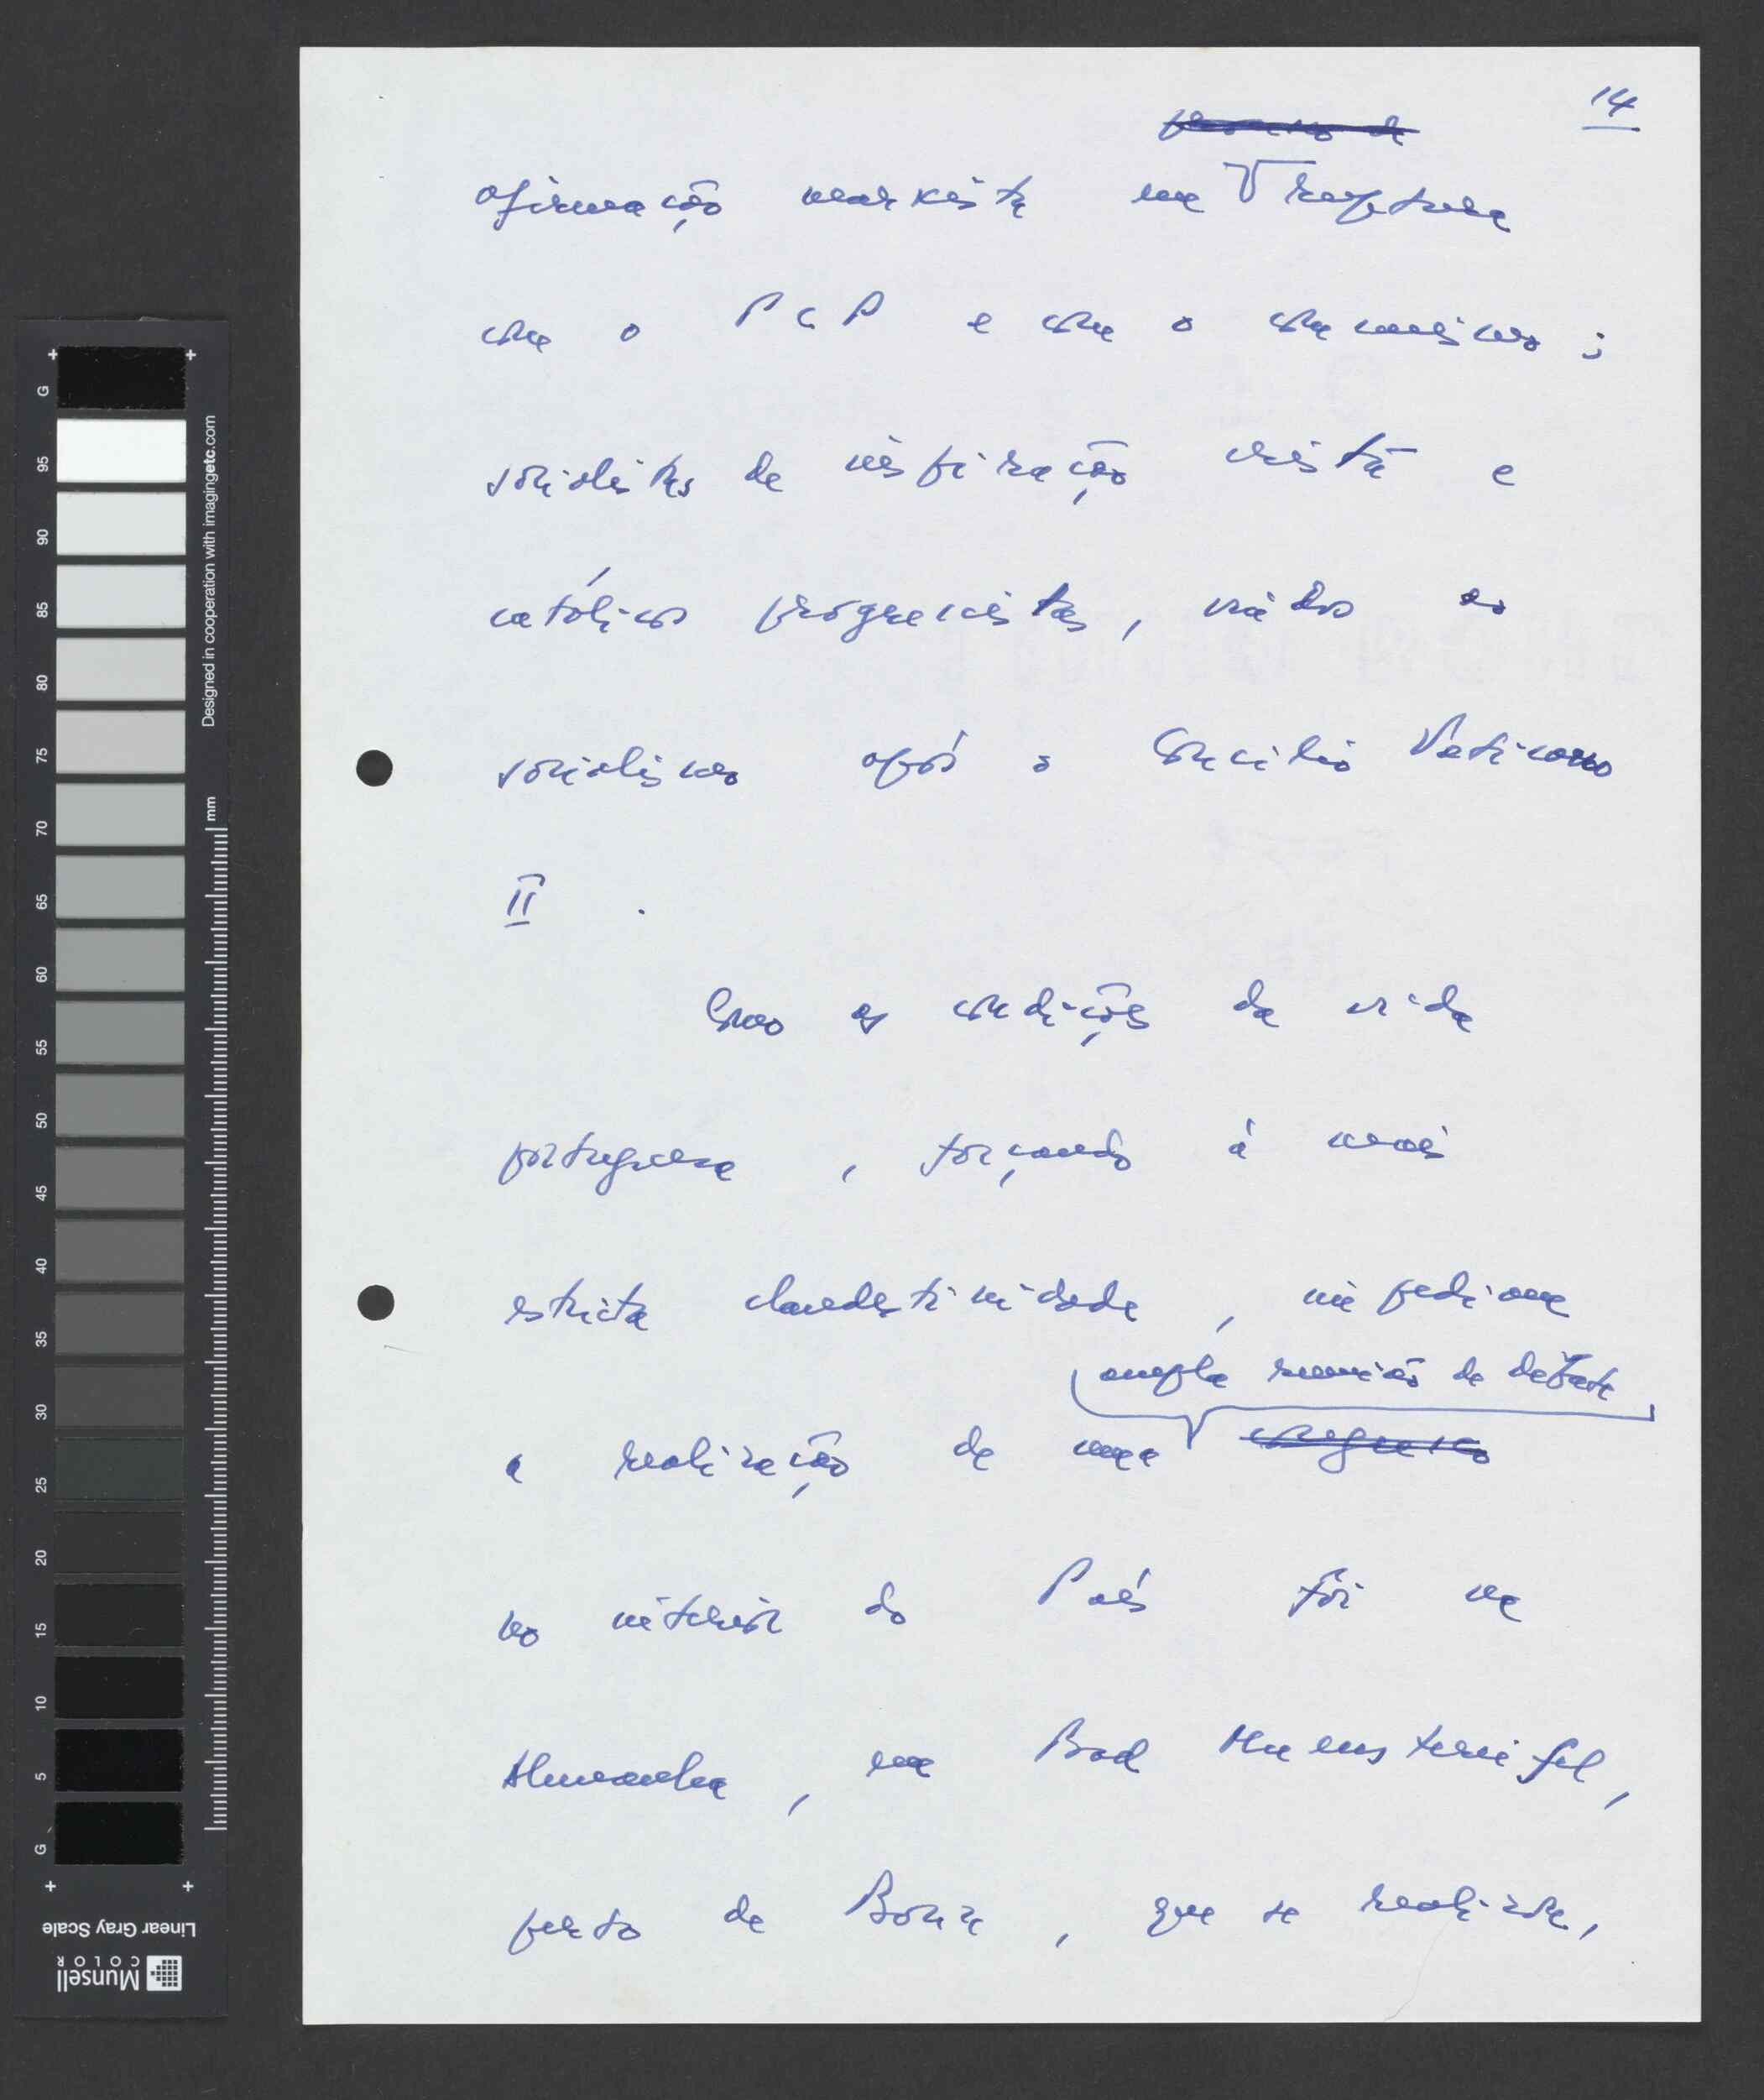 14
processo de
afirmação marxista em ruptura
com o PCP e com o comunismo ;
socialistas de inspiração cristã e
católicos progressistas, vindos ao
socialismo após o Concílio Vaticano
II .
Como as condições da vida
portuguesa , forçando à mais
estricta clandestinidade , impediam
ampla reunião de debate
a realização de uma congresso
no interior do País foi na
Alemanha , em Bad Muenstereifel,
perto de Bona , que se realizou,
G
95
90
85
80
75
70
65
60
55
50
45
40
35
30
25
20
15
10
5
G
mm
Designed in cooperation with imagingetc.com
Linear Gray Scale
Munsell
COLOR